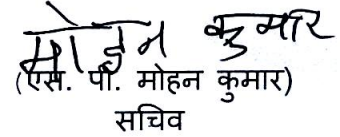 मोहन कुमार
(एस. पी. मोहन कुमार)
सचिव